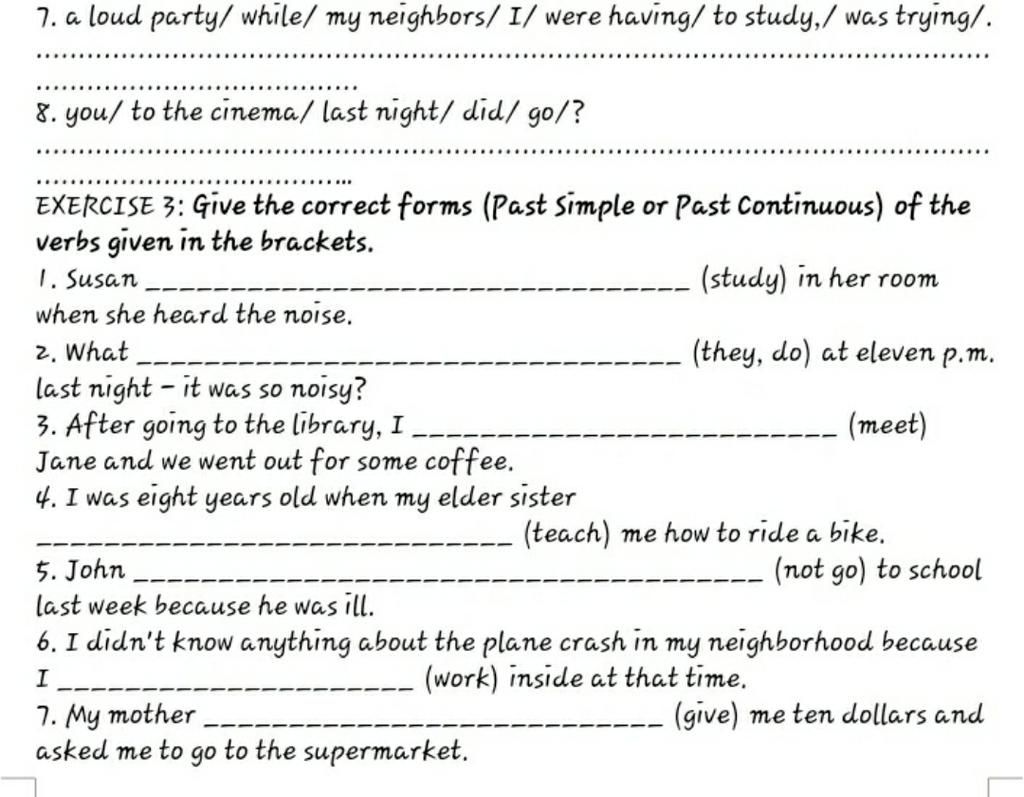 7. a loud party/ while/ my neighbors/ I/ were having/ to study,/ was trying/.
..............................................................................................................
.....................................
8. you/ to the cinema/ last night/ did/ go/?
..............................................................................................................
.....................................
EXERCISE 3: Give the correct forms (Past Simple or Past Continuous) of the
verbs given in the brackets.
1. Susan ________________________________ (study) in her room
when she heard the noise.
2. What ________________________________ (they, do) at eleven p.m.
last night – it was so noisy?
3. After going to the library, I _________________________ (meet)
Jane and we went out for some coffee.
4. I was eight years old when my elder sister
____________________________ (teach) me how to ride a bike.
5. John _____________________________________ (not go) to school
last week because he was ill.
6. I didn't know anything about the plane crash in my neighborhood because
I _____________________ (work) inside at that time.
7. My mother ___________________________ (give) me ten dollars and
asked me to go to the supermarket.